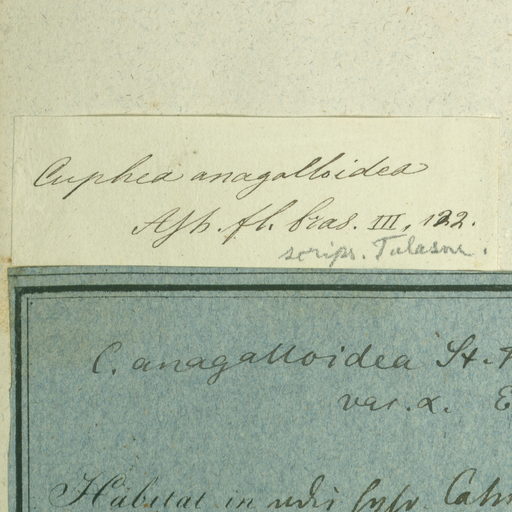 Cuphea anagalloidea
ASh. fl. bras. III, 122.
scrips. Tulasne.
C. anagalloidea St.
var. α. E
Habitat in